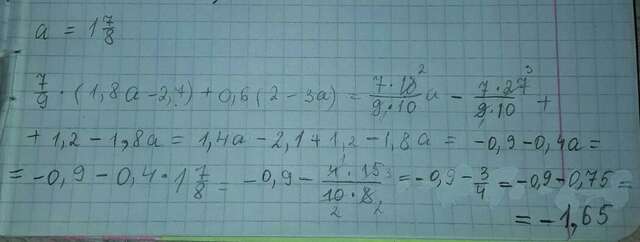 a = 1 7/8
7/9 · (1,8a - 2,7) + 0,6(2 - 3a) = 7·18²/9·10 a - 7·27³/9·10 +
+ 1,2 - 1,8a = 1,4a - 2,1 + 1,2 - 1,8a = -0,9 - 0,4a =
= -0,9 - 0,4 · 1 7/8 = -0,9 - 4¹·15³/10₂·8₂ = -0,9 - 3/4 = -0,9 - 0,75 =
= -1,65